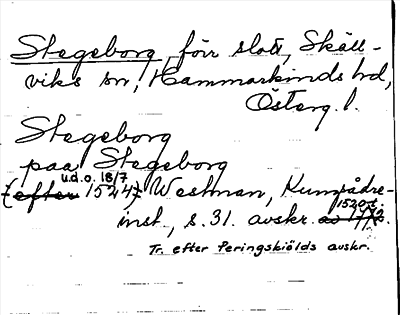 Stegeborg, förr slott, Skäll-
viks sn, Hammarkinds hd,
Österg. l.
Stegeborg
paa Stegeborg
u.d.o. 18/7
{efter 1524} Westman, Kungsådre-
1520t.
inst., s. 31. avskr.
Tr. efter Peringskiölds avskr.